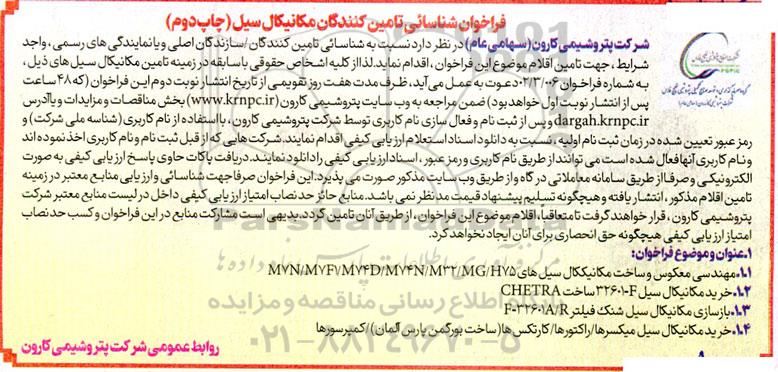 فراخوان شناسائی تامین کنندگان مکانیکال سیل (چاپ دوم)
شرکت پتروشیمی کارون (سهامی عام) در نظر دارد نسبت به شناسائی تامین کنندگان /سازندگان اصلی و یا نمایندگی های رسمی ، واجد
شرایط ، جهت تامین اقلام موضوع این فراخوان ، اقدام نماید. لذا از کلیه اشخاص حقوقی با سابقه در زمینه تامین مکانیکال سیل های ذیل ،
به شماره فراخوان ۰۲/۳۰۰۶ دعوت به عمل می آید ، ظرف مدت هفت روز تقویمی از تاریخ انتشار نوبت دوم این فراخوان (که ۴۸ ساعت
پس از انتشار نوبت اول خواهد بود) ضمن مراجعه به وب سایت پتروشیمی کارون (www.krnpc.ir) بخش مناقصات و مزایدات و یا آدرس
dargah.krnpc.ir و پس از ثبت نام و فعال سازی نام کاربری توسط شرکت پتروشیمی کارون ، با استفاده از نام کاربری (شناسه ملی شرکت) و
رمز عبور تعیین شده در زمان ثبت نام اولیه ، نسبت به دانلود اسناد استعلام ارزیابی کیفی اقدام نمایند. شرکت هایی که از قبل ثبت نام و نام کاربری اخذ نموده اند
و نام کاربری آنها فعال شده است می توانند از طریق نام کاربری و رمز عبور ، اسناد ارزیابی کیفی را دانلود نمایند. دریافت پاکات حاوی پاسخ ارزیابی کیفی به صورت
الکترونیکی و صرفا از طریق سامانه معاملاتی درگاه و از طریق وب سایت مذکور صورت می پذیرد. این فراخوان صرفا جهت شناسائی و ارزیابی منابع معتبر در زمینه
تامین اقلام مذکور ، انتشار یافته و هیچگونه تسلیم پیشنهاد قیمت مد نظر نمی باشد. منابع حائز حد نصاب امتیاز ارزیابی کیفی داخل در لیست منابع معتبر شرکت
پتروشیمی کارون ، قرار خواهند گرفت تا متعاقباً ، اقلام موضوع این فراخوان ، از طریق آنان تامین گردد. بدیهی است مشارکت منابع در این فراخوان و کسب حد نصاب
امتیاز ارزیابی کیفی هیچگونه حق انحصاری برای آنان ایجاد نخواهد کرد.
۱. عنوان و موضوع فراخوان:
۱.۱. مهندسی معکوس و ساخت مکانیککال سیل های M۷N/M۷F۲/M۷۴D/M۷۴N/M۳۲/MG/H۷۵
۱.۲. خرید مکانیکال سیل ۳۲۶۰۱-F ساخت CHETRA
۱.۳. بازسازی مکانیکال سیل شنک فیلتر F-۳۲۶۰۱A/R
۱.۴. خرید مکانیکال سیل میکسرها/راکتورها/کارتکس ها (ساخت بورگمن پارس آلمان)/کمپرسورها
روابط عمومی شرکت پتروشیمی کارون
پایگاه اطلاع رسانی مناقصه و مزایده
۰۲۱-۸۸۳۴۹۶۷۰-۵